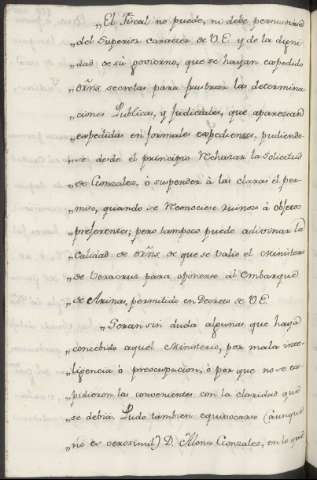 „El Fiscal no puede, ni debe persuadirse
„del Superior caracter de V.E. y de la digni
„dad de su govierno, que se hayan expedido
„orñs secretas para frustrar las determina
„ciones Publicas, y Judiciales, que aparescan
„expedidas en formales expedientes, pudiendo-
„se desde el principio rechazar la solicitud
„de Gonzales, ó suspender á las claras el per-
„miso, quando se reconociese ruinoso á objetos
„preferentes; pero tampoco puede adivinar la
„calidad de orñs. de que se valió el Ministerio
„de Veracruz para oponerse al embarque
„de Arinas, permitido en Decreto de V.E.
„Seran sin duda algunas que haya
„concebido aquel Ministerio, por mala inte-
„ligencia ó preocupacion, ó por que no se ex-
„pidieron las convenientes con la claridad que
„se debia. Pudo tambien equivocarse (aunque
„no es verosimil) D. Alonso Gonzales, en lo que